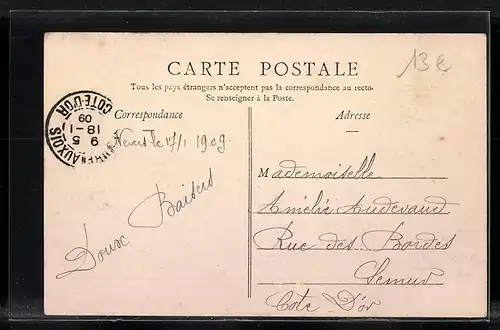 13 €
CARTE POSTALE
Tous les pays étrangers n'acceptent pas la correspondance au recto.
Se renseigner à la Poste.
Correspondance
Adresse
9 5
18-1
09
CÔTE-D'OR
Nevers le 17/1 1909.
Doux Baisers
Mademoiselle
Amélie Audevaud
Rue des Bordes
Semur
Cote d'or